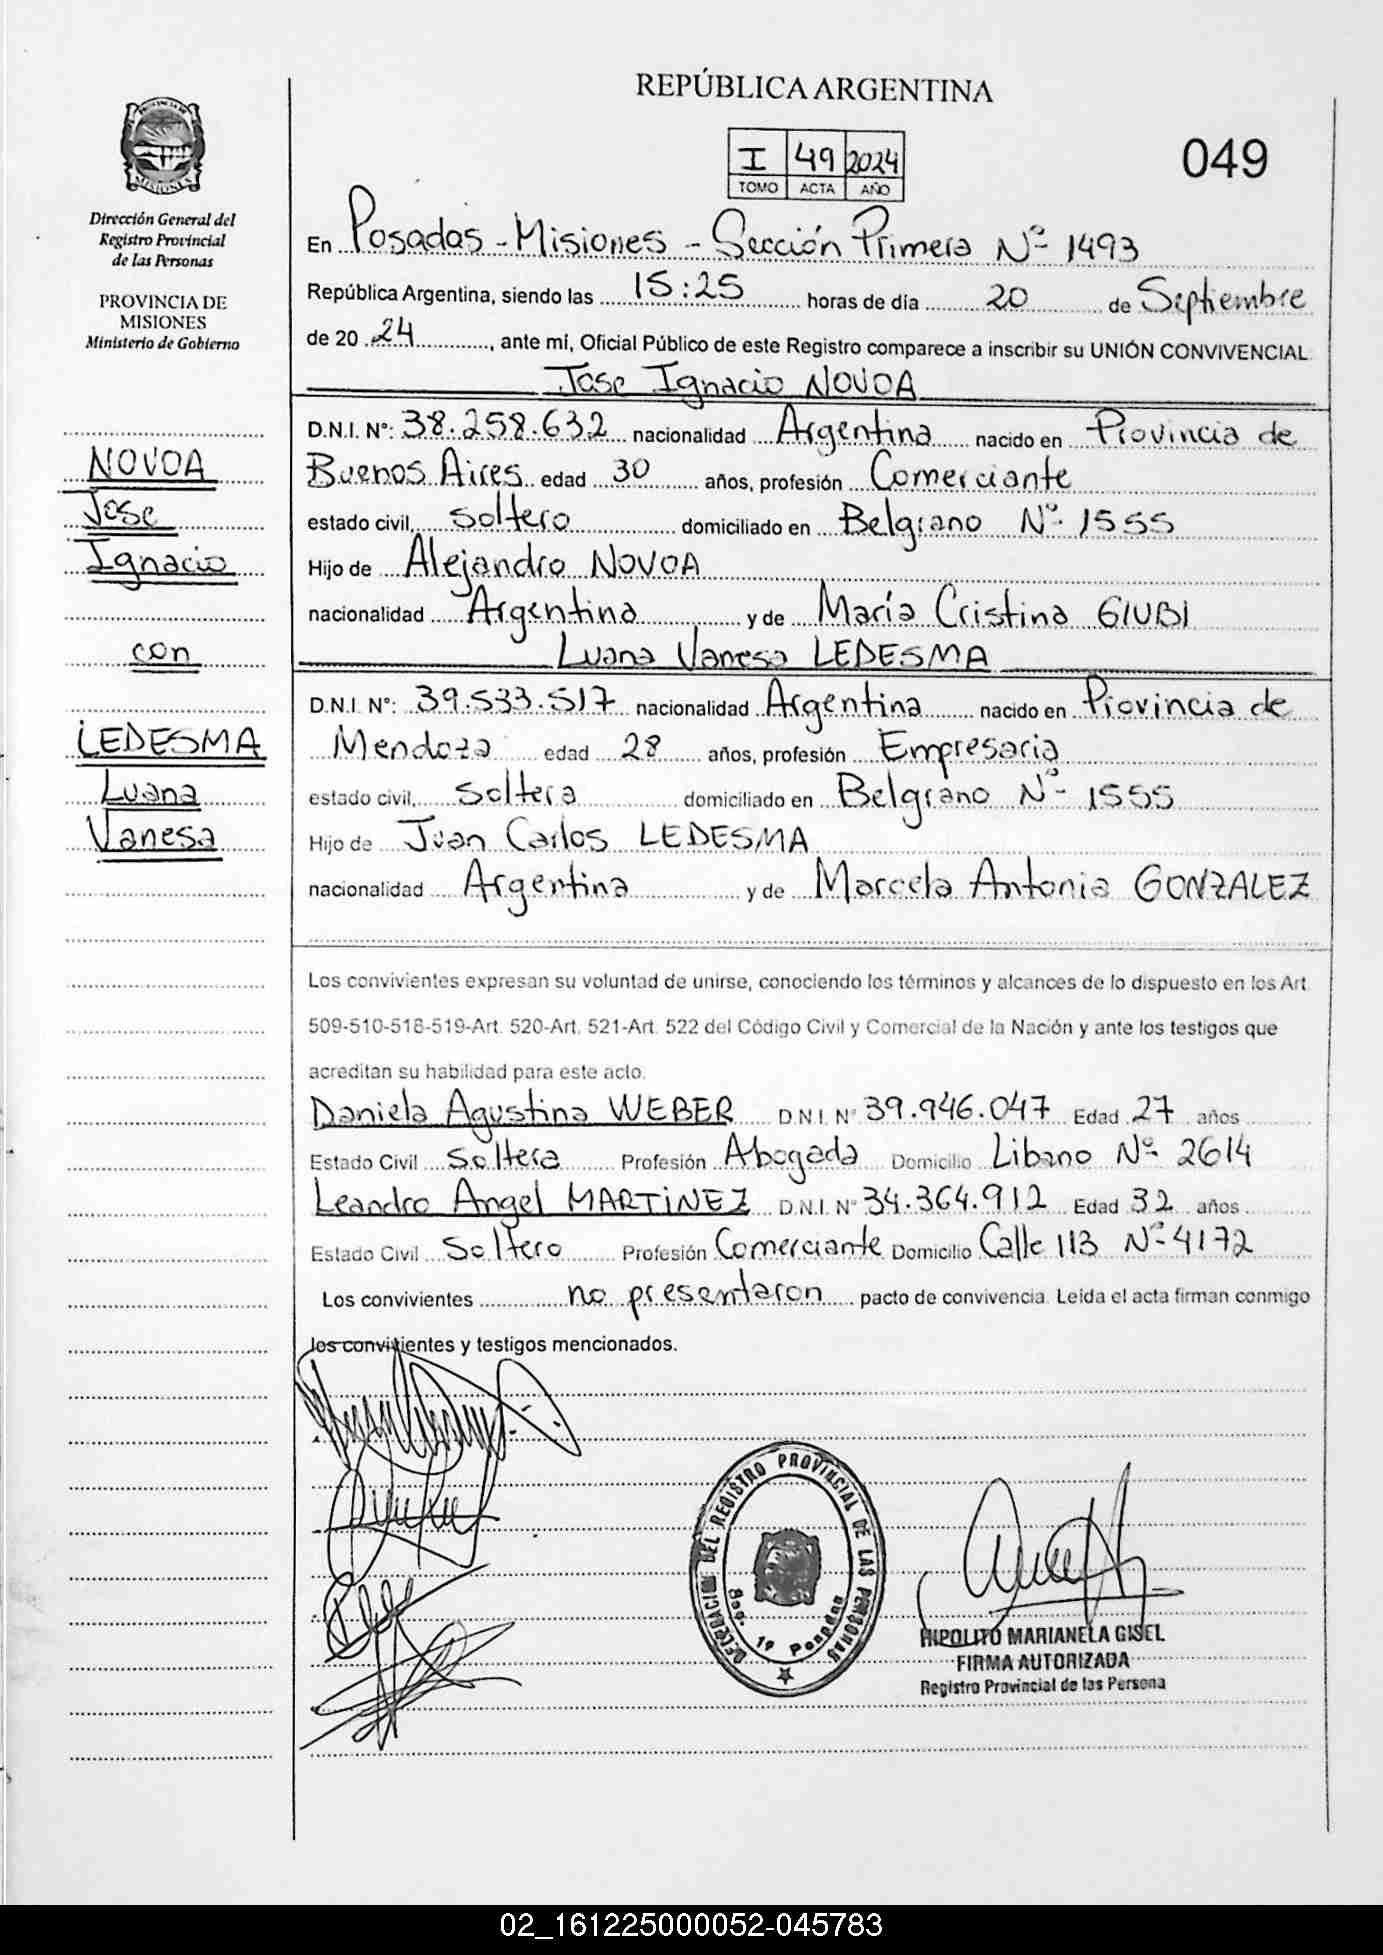 REPÚBLICA ARGENTINA
I 49 2024
TOMO ACTA AÑO
049
PROVINCIA DE
MISIONES
Dirección General del
Registro Provincial
de las Personas
PROVINCIA DE
MISIONES
Ministerio de Gobierno
NOVOA
Jose
Ignacio
con
LEDESMA
Luana
Vanesa
En Posadas - Misiones - Sección Primera Nº 1493
República Argentina, siendo las 15:25 horas de día 20 de Septiembre
de 20 24, ante mí, Oficial Público de este Registro comparece a inscribir su UNIÓN CONVIVENCIAL
Jose Ignacio NOVOA
D.N.I. Nº: 38.258.632 nacionalidad Argentina nacido en Provincia de
Buenos Aires edad 30 años, profesión Comerciante
estado civil, soltero domiciliado en Belgrano Nº 1555
Hijo de Alejandro NOVOA
nacionalidad Argentina y de María Cristina GIUBI
Luana Vanesa LEDESMA
D.N.I. Nº: 39.533.517 nacionalidad Argentina nacido en Provincia de
Mendoza edad 28 años, profesión Empresaria
estado civil, soltera domiciliado en Belgrano Nº 1555
Hijo de Juan Carlos LEDESMA
nacionalidad Argentina y de Marcela Antonia GONZALEZ
Los convivientes expresan su voluntad de unirse, conociendo los términos y alcances de lo dispuesto en los Art.
509-510-518-519-Art. 520-Art. 521-Art. 522 del Código Civil y Comercial de la Nación y ante los testigos que
acreditan su habilidad para este acto.
Daniela Agustina WEBER D.N.I. Nº 39.946.047 Edad 27 años
Estado Civil Soltera Profesión Abogada Domicilio Libano Nº 2614
Leandro Angel MARTINEZ D.N.I. Nº 34.364.912 Edad 32 años
Estado Civil Soltero Profesión Comerciante Domicilio Calle 113 Nº 4172
Los convivientes no presentaron pacto de convivencia. Leída el acta firman conmigo
los convivientes y testigos mencionados.
DELEGACION DEL REGISTRO PROVINCIAL DE LAS PERSONAS
Sec. 1ª Posadas
HIPOLITO MARIANELA GISEL
FIRMA AUTORIZADA
Registro Provincial de las Persona
02_161225000052-045783